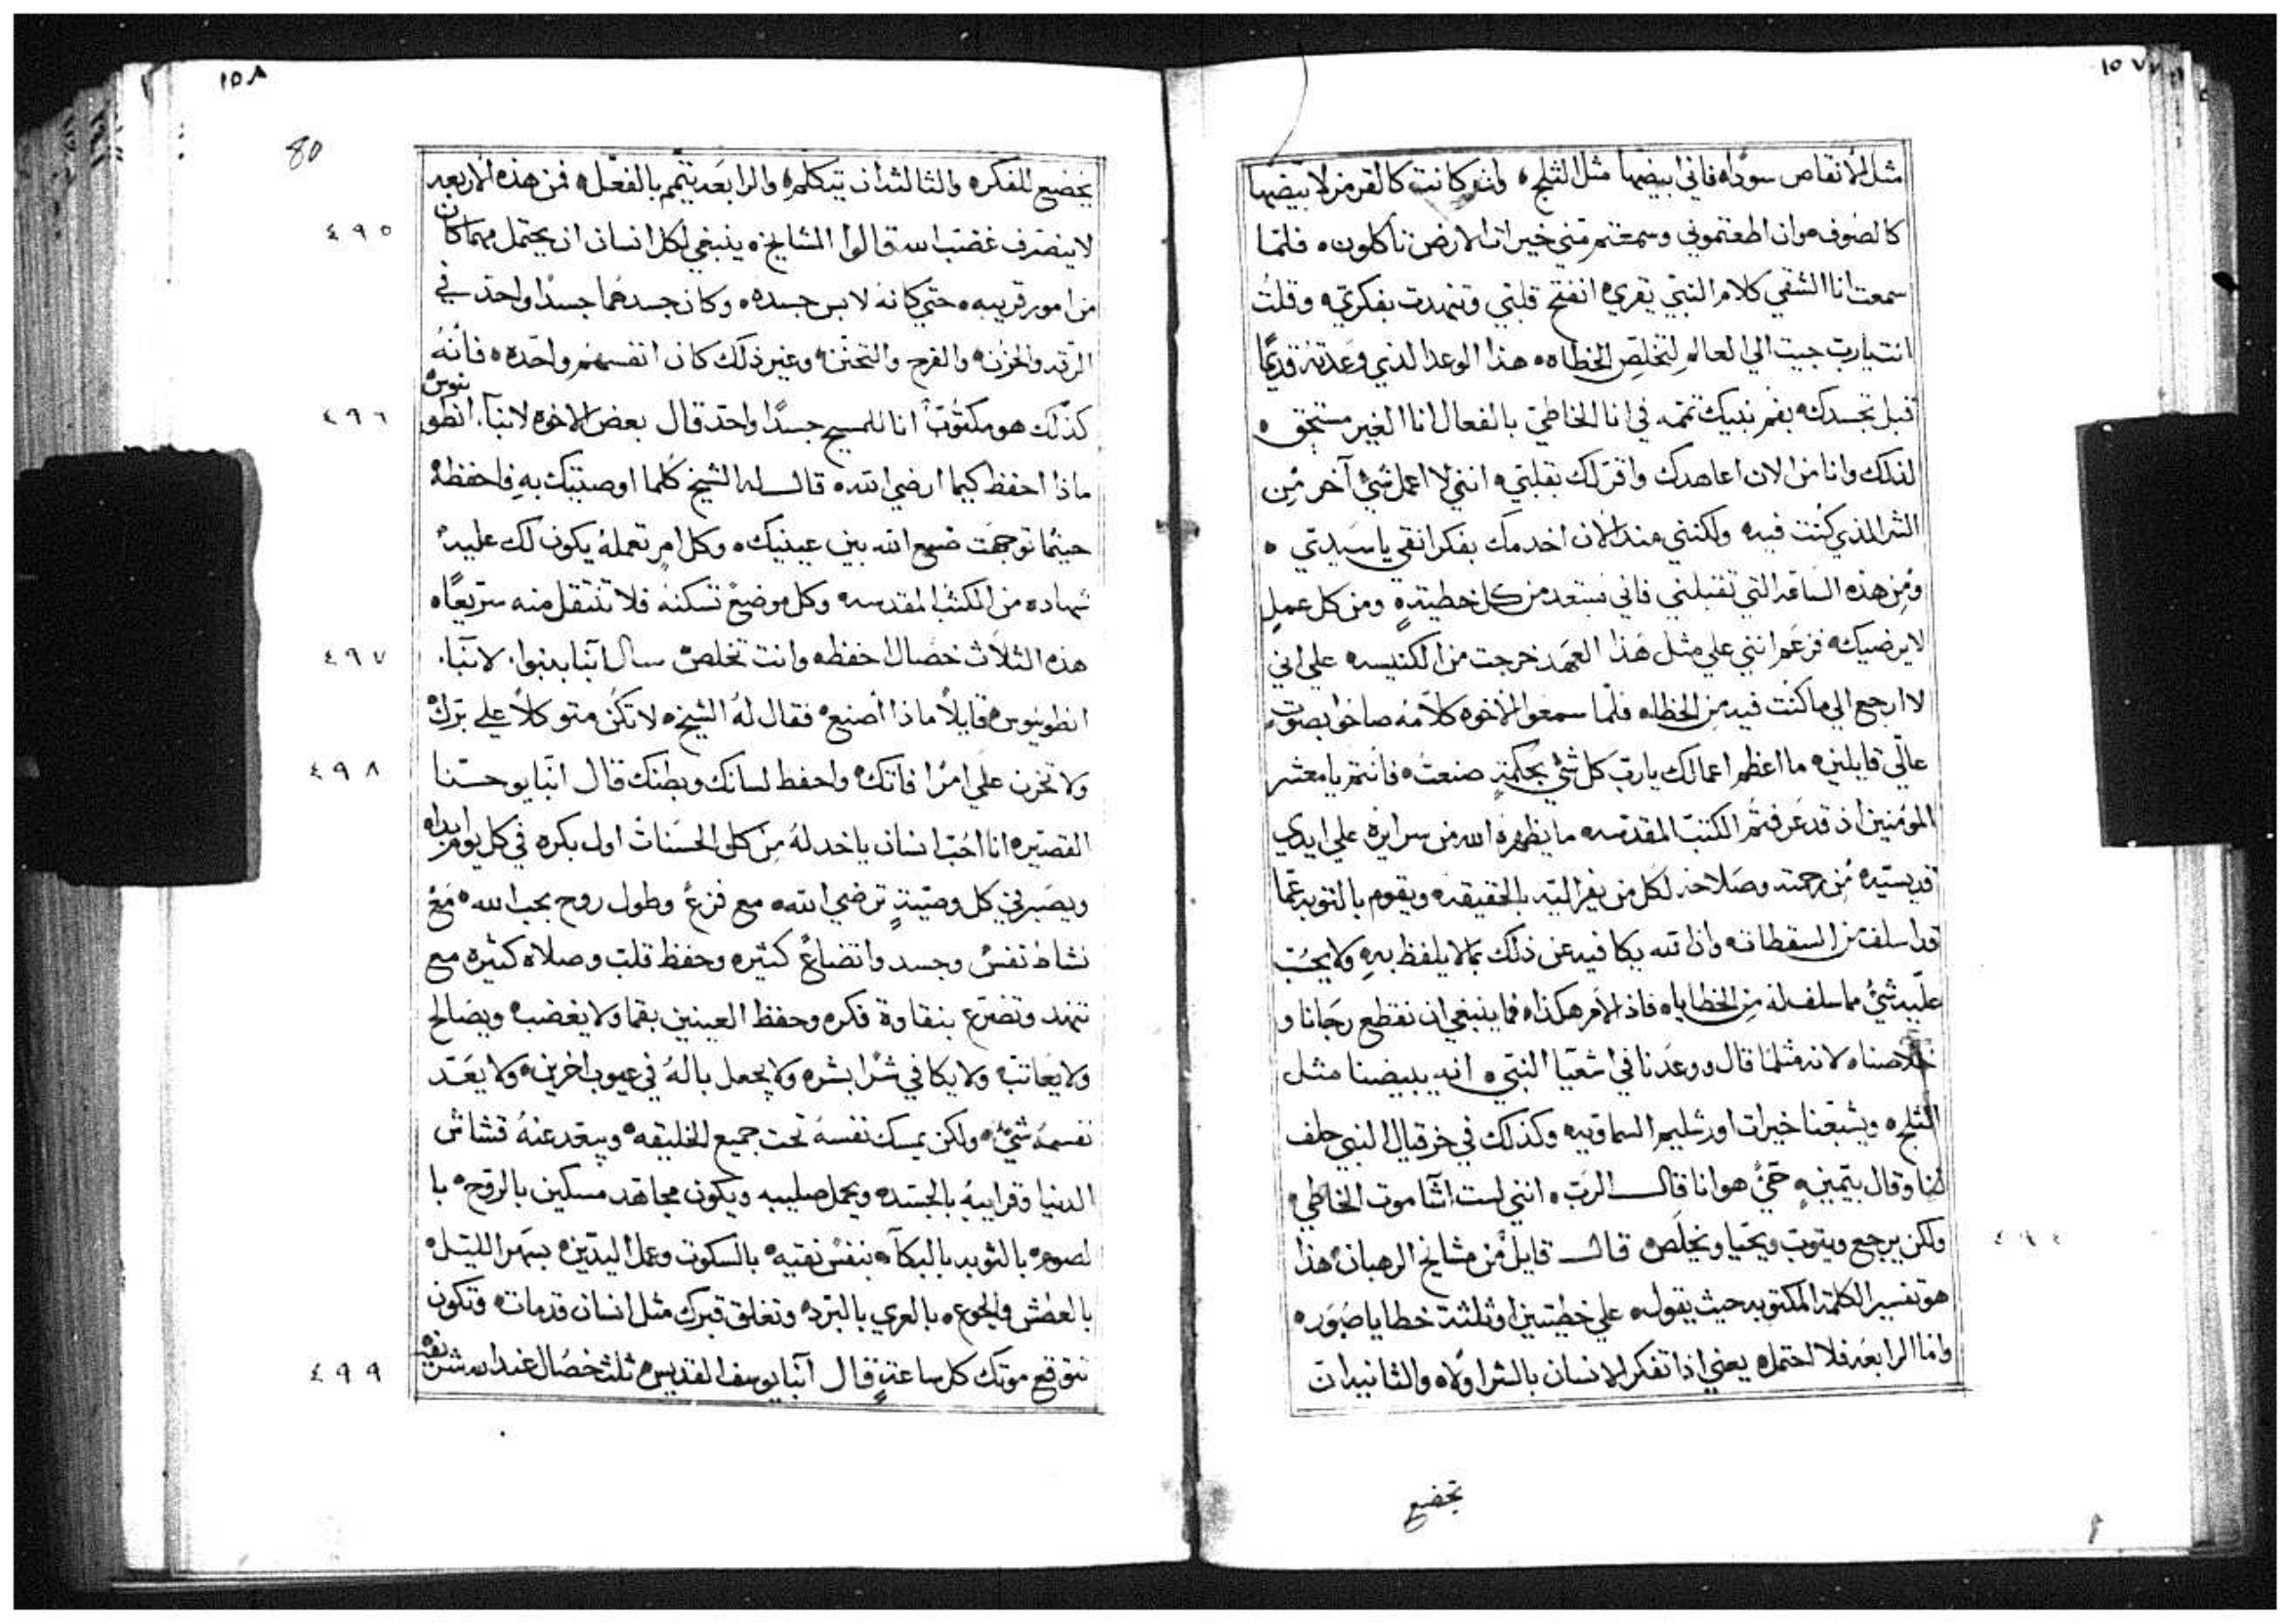 ١٥٧
مثل الانقاص سودًا، فاني ابيضها مثل الثلج، وان كانت كالقرمز لابيضنها
كالصوف، وان اطعتموني وسمعتم مني خيرات الارض تاكلون، فلما
سمعت انا الشقي كلام النبي يقري، انفتح قلبي وتنهدت بفكري، وقلتُ
انت يارب جيت الي العالم لتخلص الخطاه، هذا الوعد الذي وعدته قديمًا
قبل تجسدك، بفم نبيك تممه في انا الخاطي بالفعال انا الغير مستحق،
لذلك وانا من الان اعاهدك واقر لك بقلبي، انني لا اعمل شي آخر من
الشر الذي كنت فيه، ولكنني منذ الان اخدمك بفكر نقي يا سيدي،
ومن هذه الساعه التي تقبلني فاني مبتعد من كل خطيةٍ ومن كل عملٍ
لا يرضيك، فزعم انني علي مثل هذا العهد خرجت من الكنيسه علي اني
لا ارجع الي ما كنت فيه من الخطاه فلما سمعوا الاخوه كلامه صاخوا بصوت
عالي قايلين، ما اعظم اعمالك يارب كل شي بحكمةٍ صنعت، فانتم يا معشر
المؤمنين اذ قد عرفتم الكتب المقدسه ما يظهره الله من سرايره علي ايدي
قديسيه من رحمته وصلاحه لكل من يفر اليه بالحقيقه، ويقوم بالتوبه عما
قد اسلف من السقطات، وان الله يكافيه عن ذلك بما لا يلفظ به، ولا يحسب
عليه شيُ مما سلف له من الخطايا، فاذ الامر هكذا، فما ينبغي ان نقطع رجانا و
خلاصنا، لانه مثلما قال ووعدنا في اشعيا النبي، انه يبيضنا مثل
الثلج، ويشبعنا خيرات اورشليم السماويه وكذلك في حزقيال النبي حلف
لنا وقال بيمينٍ، حيُ هو انا قال الرب، انني لست اشا موت الخاطي،
ولكن يرجع ويتوب ويحيا ويخلص، قال قايل من مشايخ الرهبان، هذا
٤٩٤
هو تفسير الكلمة المكتوبه حيث يقول، علي خطيتين او ثلثة خطايا صبور،
واما الرابعه فلا احتمل، يعني اذا تفكر الانسان بالشر اولاه والثانيه ان
تخضع
١٥٨
80
يخضع للفكر، والثالثه ان يتكلم، والرابعه يتمم بالفعل، فمن هذه الاربعه
لا ينصرف غضب الله قالوا المشايخ، ينبغي لكل انسان ان يحتمل مهما كان
٤٩٥
من امور قريبه، حتي كانهُ لابس جسده، وكان جسدهما جسدًا واحد في
الرقه والحزن، والفرح والتحنن، وغير ذلك كان انفسهم واحده، فانهُ
كذلك هو مكتوب انا للمسيح جسدًا واحد قال بعض الاخوه لانبا انطونيوس
٤٩٦
ماذا احفظ كيما ارضي الله، قال له الشيخ كلما اوصيتك به فاحفظهُ
حيثما توجهت ضع الله بين عينيك، وكل امرٍ تعملهُ يكون لك عليه
شهاده من الكتب المقدسه وكل موضع تسكنه فلا تنتقل منه سريعًا،
هذه الثلاث خصال احفظه وانت تخلص سال انبا بنبوا، لانبا
٤٩٧
انطونيوس، قايلاً ماذا اصنع، فقال لهُ الشيخ، لا تكُن متوكلاً علي برك
ولا تحزن علي امرًا فاتك، واحفظ لسانك وبطنك قال انبا يوحنا
٤٩٨
القصير، انا احب انسان ياخد لهُ من كل الحسنات اول بكره في كل يوم ابداه
ويصبر في كل وصيةٍ ترضي الله، مع فزع وطول روح بحب الله، مع
نشاط نفس وجسد واتضاع كثير، وحفظ قلب وصلاه كثيره، مع
تنهد وتضرع بنقاوة فكر، وحفظ العينين بقما ولا يغضب، ويصالح
ولا يعاتب، ولا يكافي شرًا بشر، ولا يجعل بالهُ في عيوب اخرين، ولا يعد
نفسهُ شي، ولكن يمسك نفسهُ تحت جميع الخليقه، ويبعد عنهُ قشاش
الدنيا وقرايبهُ بالجسد، ويحمل صليبه ويكون مجاهد مسكين بالروح، با
لصوم، بالتوبه بالبكا، بنفس نقيه، بالسكوت وعمل اليدين، بسهر الليل،
بالعطش والجوع، بالعري بالبرد، وتغلق قبرك مثل انسان قد مات، وتكون
تتوقع موتك كل ساعةٍ قال انبا يوسف القديس، ثلث خصال عند الله شريفه
٤٩٩